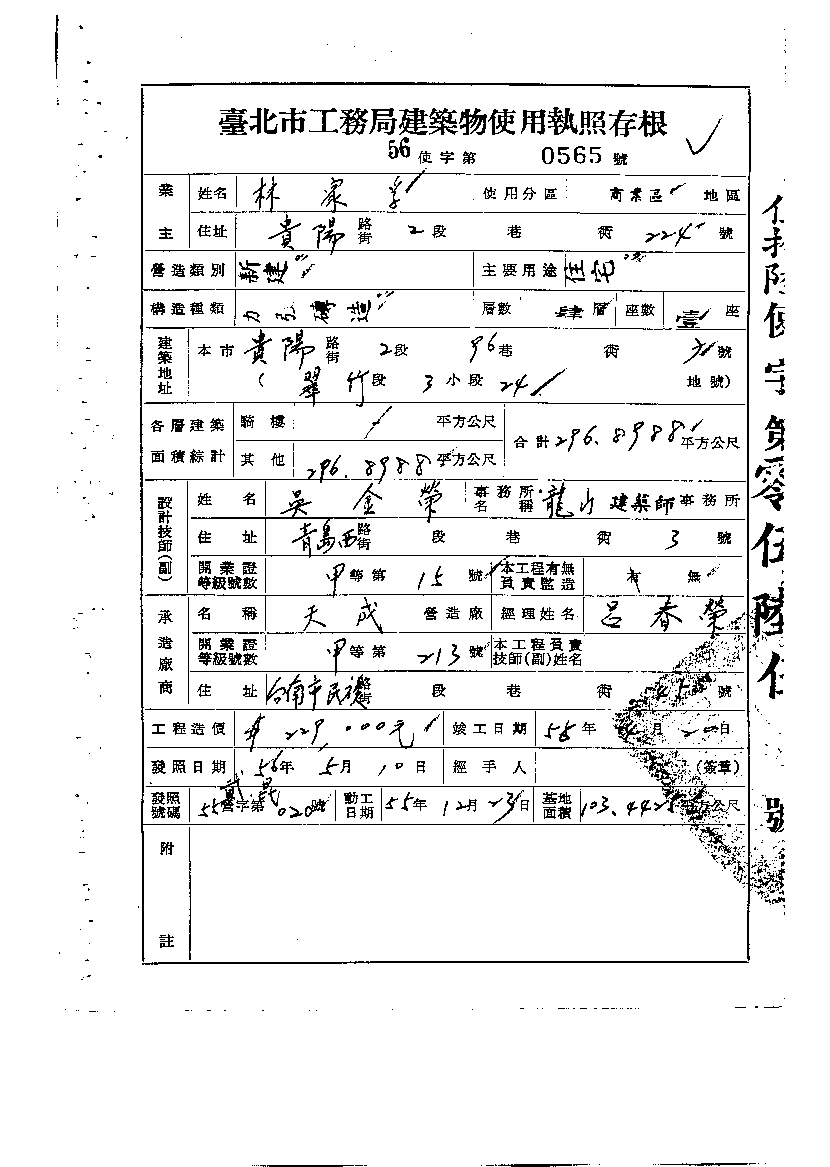 臺北市工務局建築物使用執照存根
56 使字第 0565 號
業主 姓名 林家孚 使用分區 商業區 地區
住址 貴陽路街 2段 巷 衖 224號
營造類別 新建 主要用途 住宅
構造種類 加強磚造 層數 肆層 座數 壹座
建築地址 本市 貴陽路街 2段 96巷 衖 號
( 翠竹段 3小段 24 地號)
各層建築面積綜計 騎樓 平方公尺 合計 296.8988 平方公尺
其他 296.8988 平方公尺
設計技師(副) 姓名 吳金榮 事務所名稱 龍山建築師事務所
住址 青島西路街 段 巷 衖 3號
開業證等級號數 甲等第 15號 本工程有無負責監造 有 無
承造廠商 名稱 天成 營造廠 經理姓名 呂春榮
開業證等級號數 甲等第 213號 本工程負責技師(副)姓名
住址 台南市民權路街 段 巷 衖 號
工程造價 229,000元 竣工日期 年 月 日
發照日期 56年 5月 10日 經手人 (簽章)
發照號碼 55 字第 020 號 動工日期 55年 12月 23日 基地面積 103.4425 平方公尺
附註
使字第零伍陸伍號